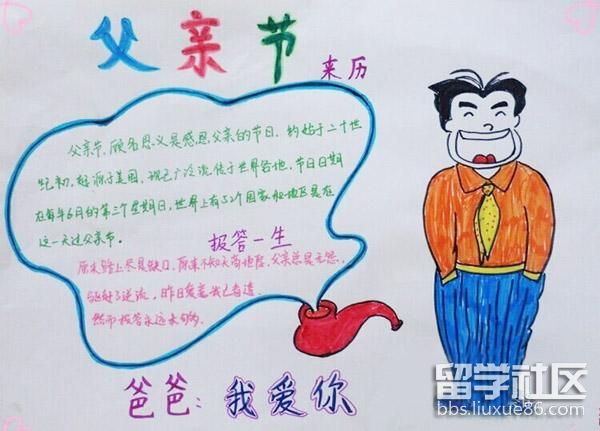 父亲节
来历
父亲节,顾名思义是感恩父亲的节日,约始于二十世
纪初,起源于美国,现已广泛流传于世界各地,节日日期
在每年6月的第三个星期日,世界上有52个国家和地区是在
这一天过父亲节。
报答一生
原来脸上尽是缺口,原来不知天高地厚,父亲总是无怨,
昨日发着我已看遗
然而报答永远未够
爸爸:我爱你
留学社区
bbs.liuxue86.com